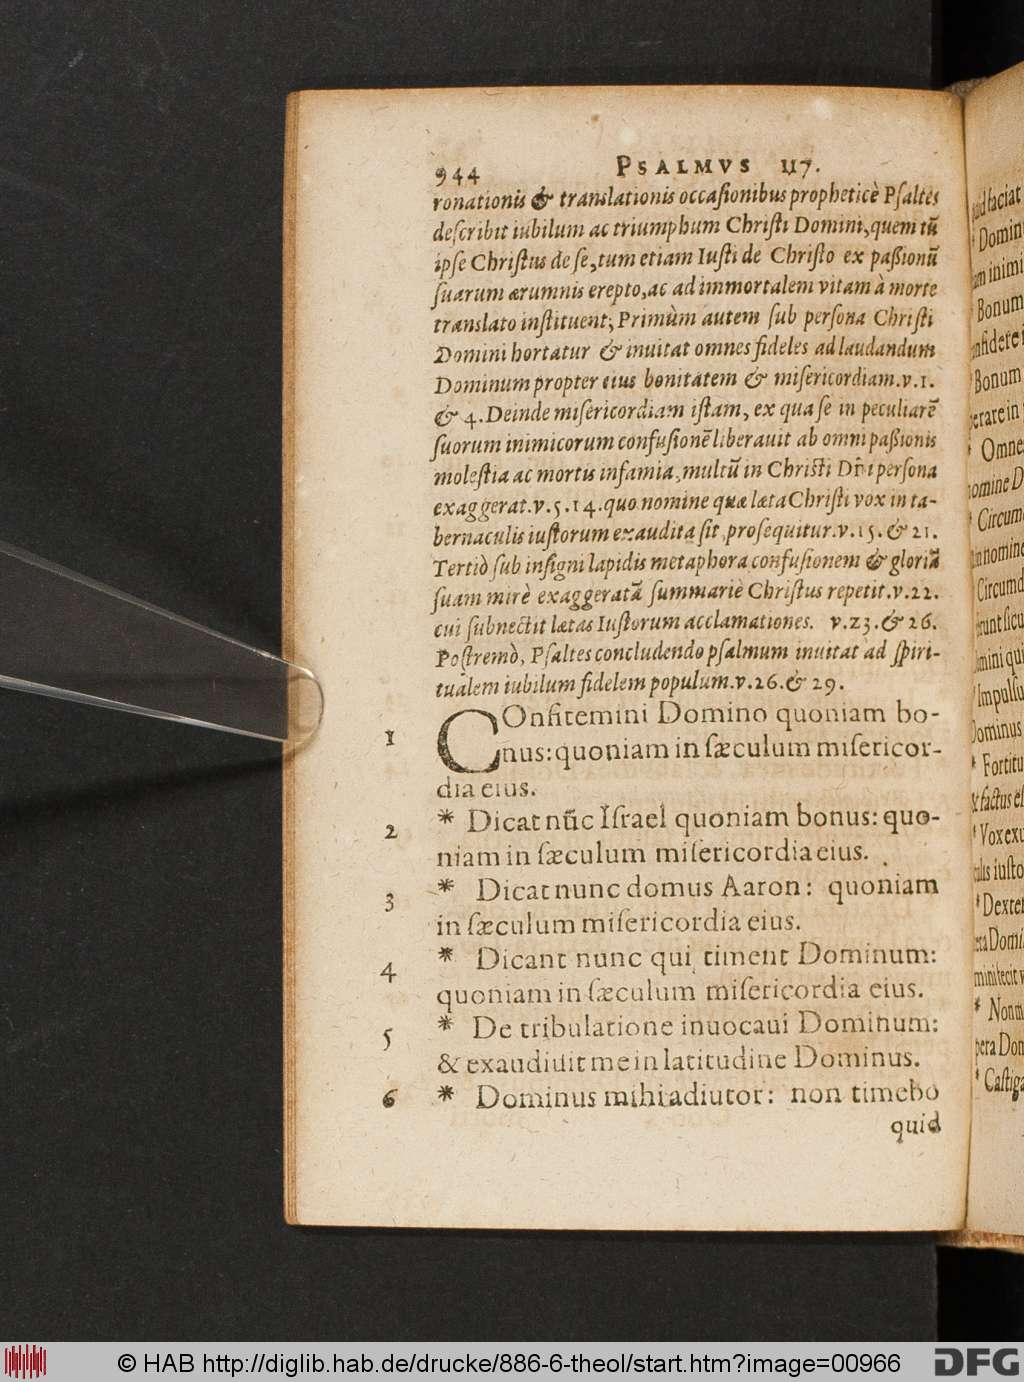 944 PSALMVS 117.
ronationis & translationis occasionibus propheticè Psaltes
describit iubilum ac triumphum Christi Domini, quem tũ
ipse Christus de se, tum etiam Iusti de Christo ex paßionũ
suarum ærumnis erepto, ac ad immortalem vitam à morte
translato instituent; Primùm autem sub persona Christi
Domini hortatur & inuitat omnes fideles ad laudandum
Dominum propter eius bonitatem & misericordiam.v.1.
& 4. Deinde misericordiam istam, ex qua se in peculiarẽ
suorum inimicorum confusionẽ liberauit ab omni paßionis
molestia ac mortis infamia, multũ in Christi Dñi persona
exaggerat.v.5.14. quo nomine quæ læta Christi vox in ta-
bernaculis iustorum exaudita sit, prosequitur.v.15.& 21.
Tertiò sub insigni lapidis metaphora confusionem & gloriã
suam mirè exaggeratã summariè Christus repetit.v.22.
cui subnectit lætas Iustorum acclamationes. v.23.& 26.
Postremò, Psaltes concludendo psalmum inuitat ad spiri-
tualem iubilum fidelem populum.v.26.& 29.
1 COnfitemini Domino quoniam bo-
nus: quoniam in sæculum misericor-
dia eius.
2 * Dicat nũc Israel quoniam bonus: quo-
niam in sæculum misericordia eius.
3 * Dicat nunc domus Aaron: quoniam
in sæculum misericordia eius.
4 * Dicant nunc qui timent Dominum:
quoniam in sæculum misericordia eius.
5 * De tribulatione inuocaui Dominum:
& exaudiuit me in latitudine Dominus.
6 * Dominus mihi adiutor: non timebo
quid
faciat
* Domin
inimi
* Bonum
nfidere i
* Bonum
perare in
* Omne
nomine D
* Circum
in nomine
* Circumd
erunt sicu
omini qui
* Impulsu
Dominus
* Fortitu
& factus e
* Vox exu
ulis iusto
* Dexte
Domi
mini fecit v
* Non m
pera Dom
* Castiga
© HAB http://diglib.hab.de/drucke/886-6-theol/start.htm?image=00966
DFG